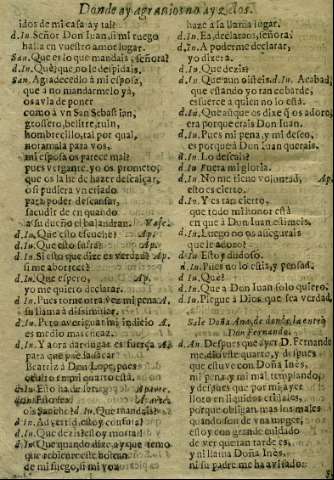 Donde ay agravios no ay zelos.
idos de mi casa ay tal?
d.In. Señor Don Iuan, si mi ruego
halla en vuestro amor lugar.
San. Que es lo que mandais señora?
d.In. Que, que no le despidais.
San. Agradecedlo a mi esposa,
que a no mandarmelo yà,
os avia de poner
como à vn San Sebastian,
grossero, belitre, ruin,
hombrecillo, tal por qual,
noramala para vos.
mi esposa os parece mal?
pues vergante, yo os prometo,
que os la he de hazer descalçar,
o si pudiera vn criado
para poder descansar,
sacudir de en quando
a su dueño el balandran. Vase.
d.Iu. Que esto escuche? Ap.
d.In. Que esto sufra? Ap.
d.Iu. Si esto que dize es verdad? Ap.
si me aborrece?
d.In. Que espero,
yo me quiero declarar.
d.Iu. Pues torne otra vez mi pena. A.
su llama à dissimular.
d.In. Pero averiguar mi indicio A.
es medio mas eficaz.
d.Iu. Y aora dar dugas es fuerça
para que pueda sacar
Beatriz à Don Lope, pues
oculto en mi quarto està.
d.In. Esto ha de ser
d.In. Que mandais?
d.In. Advertid, estoy confusa!
d.Iu. Que dezis? estoy mortal!
d.In. Que quando
de mi fuego, si mi voz
haze a la llama lugar.
d.Iu. Ea, declaraos, señora.
d.In. A poderme declarar,
yo dixera.
d.Iu. Que dezis?
d.In. Que aun no distein. d.Iu. Acabad,
que estando yo tan cobarde,
esfuerce a quien no lo està.
d.In. Que aunque os dixe q̃ os adoro
era porque erais Don Iuan.
d.Iu. Pues mi pena, y mi deseo,
es porque à Don Iuan querais.
d.In. Lo deseais?
d.Iu. Fuera mi gloria.
d.In. No me tiene voluntad, Ap.
esto es cierto.
d.Iu. Y es tan cierto,
que todo mi honor està
en que à Don Iuan estimeis.
d.In. Luego no os assegurais
que le adoro?
d.Iu. Estoy dudoso.
d.In. Pues no lo esteis, y pensad.
d.Iu. Que?
d.In. Que a Don Iuan solo quiero.
d.Iu. Plegue à Dios que sea verdad.
Sale Doña Ana, de donde la entrò
Don Fernando.
d.An. Despues que ayer D. Fernando
me dio este quarto, y despues
que estuve con Doña Inès,
mi pena, y mi mal templando,
y despues que por mi ayer
lloro en liquidos cristales,
porque obligan mas los males
quando son de vna muger;
estoy con grande cuidado
de ver que tan tarde es,
y ni llama Doña Inès,
ni su padre me ha avisado.